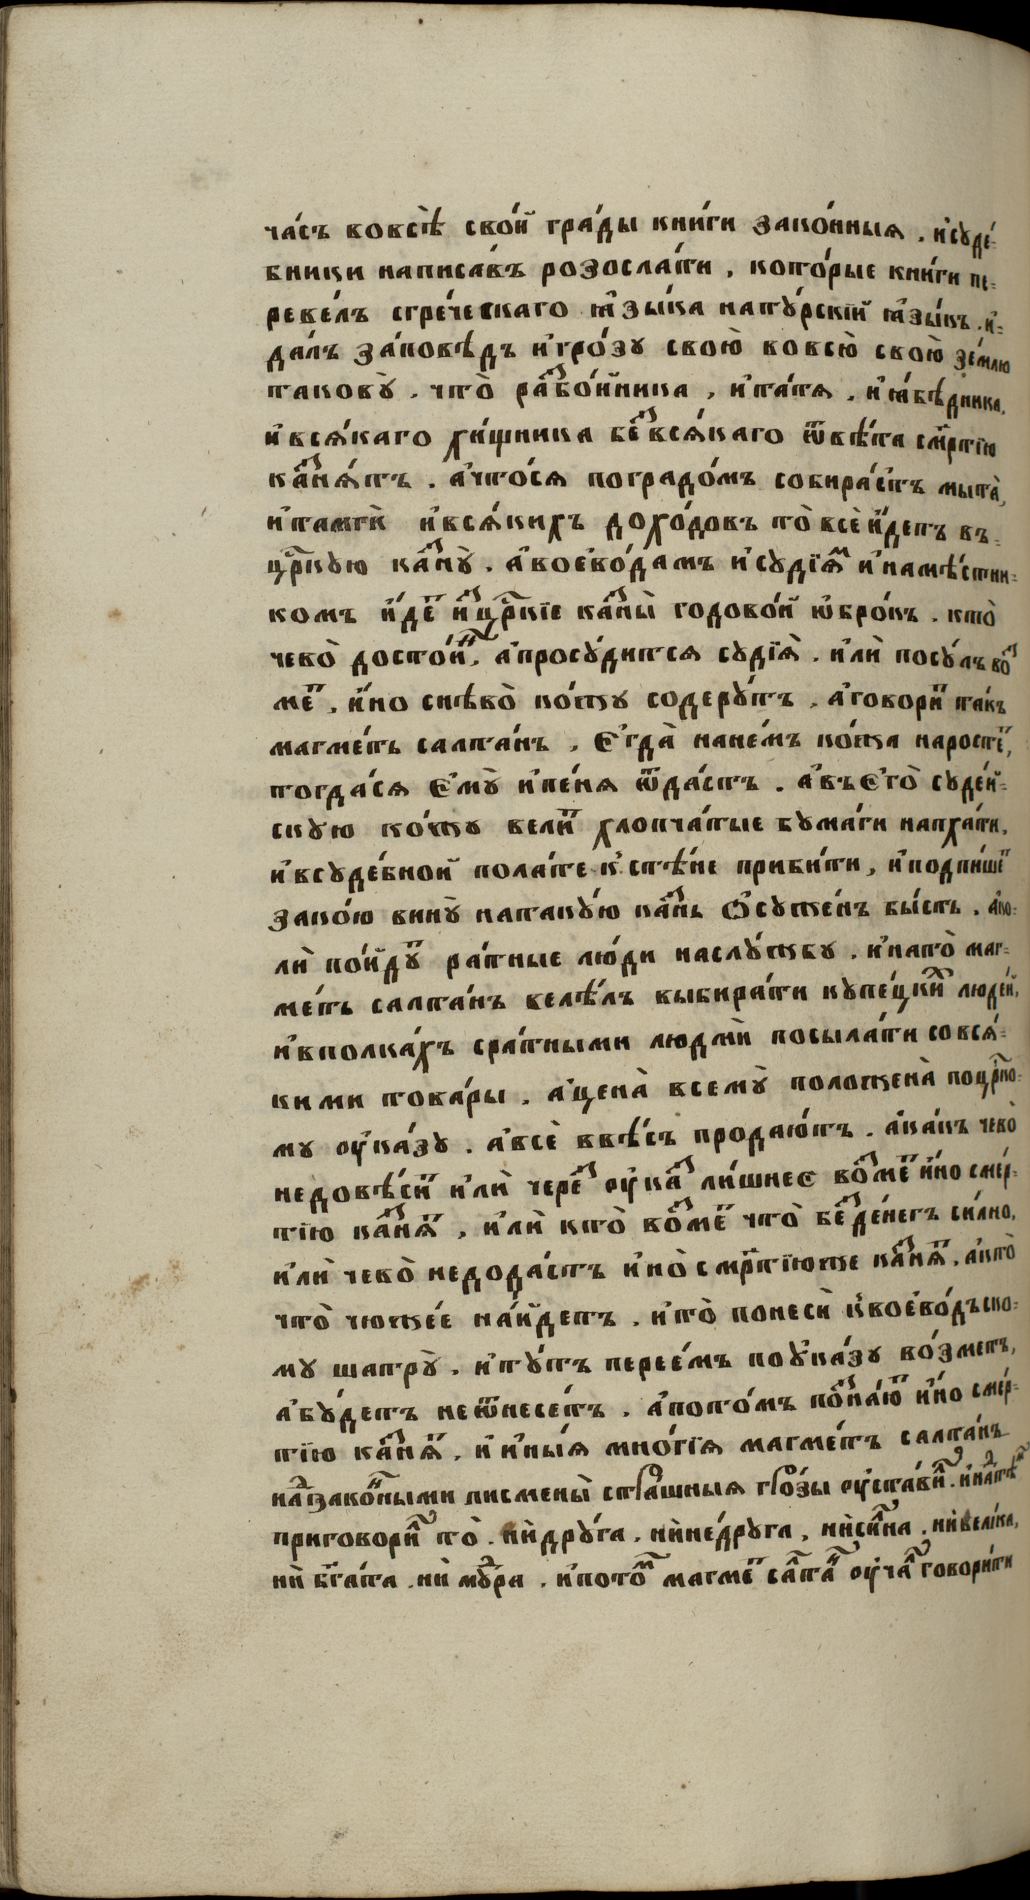 ча́съ вовсѣ̀ сво́й гра́ды кни́ги зако́нныя . и҆суде́-
бники написа́въ розосла́ти , кото́рые кни́ги пе-
реве́лъ сгре́ческаго ꙗ҆зы́ка натꙋ́рскїй ꙗ҆зы́къ . и҆-
да́лъ за́повѣдь и҆гро́зꙋ свою̀ вовсю̀ свою̀ зе́млю
таковꙋ̀ . что̀ раⷥбо́йника , и҆та́тя . и҆ꙗ҆́бѣдника ,
и҆вся́каго хи́щника беⷥвся́каго ѿвѣ́та сме́ртїю
каⷥня́тъ . а҆что́ся поградо́мъ собира́етъ мыта̀ ,
и҆тамгѝ и҆вся́кихъ дохо́довъ то̀ всѐ и҆́детъ въ-
црⷭ҇кꙋю каⷥнꙋ̀ . а҆воево́дамъ и҆сꙋдїѧⷨ и҆намѣ́стни-
комъ и҆́деⷮ иⷥцрⷭ҇кїе каⷥны̀ годово́й ѡ҆бро́къ . кто̀
чево̀ досто́иⷩ , а҆просꙋ́дится сꙋдїя̀ . и҆лѝ посꙋ́лъ воⷥ
меⷮ , и҆́но снѣво̀ ко́жꙋ содерꙋ́тъ . а҆говориⷮ та́къ
магме́тъ салта́нъ , Є҆гда̀ нане́мъ ко́жа наросте́ⷮ ,
тогда́ся є҆мꙋ̀ и҆пеня ѿда́стъ . а҆въє҆го̀ сꙋде́й-
скꙋю ко́жꙋ вели́ⷮ хлопча́тые бꙋма́ги напха́ти ,
и҆всꙋде́бной пола́те кстѣ́не приби́ти , и҆подпи́шеⷮ
зако́ю винꙋ̀ натакꙋ́ю каⷥнь ѡ҆сꙋже́нъ бы́сть . а҆ко-
лѝ по́йдꙋⷮ ра́тные лю́ди наслꙋ́жбꙋ . и҆нато̀ маг-
ме́тъ салта́нъ велѣ́лъ выбира́ти кꙋпе́цкиⷯ люде́й ,
и҆вполка́хъ сра́тными людмѝ посыла́ти совся́-
кими това́ры . а҆цена̀ всемꙋ̀ положена̀ поцрⷭ҇ко-
мꙋ оу҆ка́зꙋ . а҆всѐ ввѣ́съ продаю́тъ . а҆ка́къ чево̀
недовѣ́сиⷮ и҆лѝ череⷥ оу҆каⷥ ли́шнее воⷥмеⷮ и҆́но сме́р-
тїю каⷥня́ⷮ , и҆лѝ кто̀ воⷥмеⷮ что̀ беⷥде́негъ си́лно ,
и҆лѝ чево̀ недода́стъ и҆но̀ сме́ртїюже каⷥня́ⷮ , а҆кто̀
что̀ чюже́е на́йдетъ . и҆то̀ понесѝ квоево́дъско-
мꙋ шатрꙋ̀ . и҆тꙋ́тъ перее́мъ поꙋка́зꙋ во́зметъ ,
а҆бꙋ́детъ неѿнесе́тъ . а҆пото́мъ поⷥна́юⷮ и҆́но сме́р-
тїю каⷥня́ⷮ . и҆ и҆ны́я мно́гїя магме́тъ салта́нъ
наⷣзако́нными писмены̀ стра́шныя гро́зы оу҆ста́виⷧ . и҆на́тѣⷯ
приговори́ⷧ то̀ . нѝдрꙋ́га . нѝне́дрꙋга , нѝси́лна . нѝвели́ка ,
нѝ бг҃а́та . нѝ мꙋ́ⷣра . и҆пото́ⷨ магме́ⷮ саⷧтаⷩ оу҆ча́ⷧ говори́ти